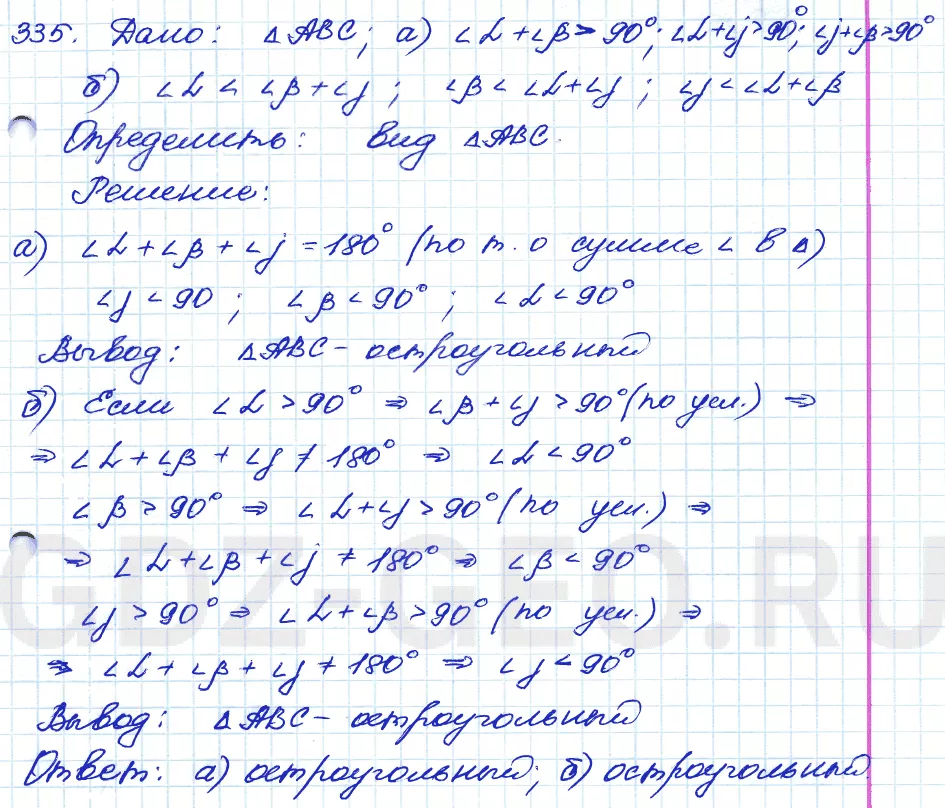 335. Дано: △ABC; а) ∠α+∠β>90°; ∠α+∠j>90°; ∠j+∠β>90°
б) ∠α<∠β+∠j; ∠β<∠α+∠j; ∠j<∠α+∠β
Определить: вид △ABC.
Решение:
а) ∠α+∠β+∠j=180° (по т. о сумме ∠ в △)
∠j<90; ∠β<90°; ∠α<90°
Вывод: △ABC - остроугольный
б) Если ∠α>90° ⇒ ∠β+∠j>90° (по усл.) ⇒
⇒ ∠α+∠β+∠j≠180° ⇒ ∠α<90°
∠β>90° ⇒ ∠α+∠j>90° (по усл.) ⇒
⇒ ∠α+∠β+∠j≠180° ⇒ ∠β<90°
GDZ-GEO.RU
∠j>90° ⇒ ∠α+∠β>90° (по усл.) ⇒
⇒ ∠α+∠β+∠j≠180° ⇒ ∠j<90°
Вывод: △ABC - остроугольный
Ответ: а) остроугольный; б) остроугольный